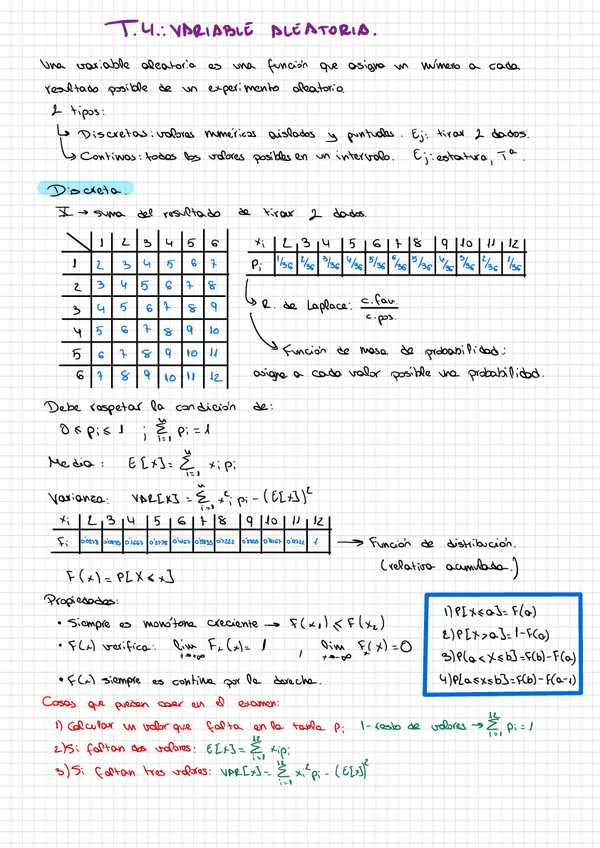 T.4.: VARIABLE ALEATORIA.
Una variable aleatoria es una función que asigna un número a cada
resultado posible de un experimento aleatorio.
2 tipos:
↳ Discretas: valores numéricos aislados y puntuales. Ej: tirar 2 dados.
↳ Continuas: todos los valores posibles en un intervalo. Ej: estatura, Tª.
Discreta.
X → suma del resultado de tirar 2 dados.
1 2 3 4 5 6
1 2 3 4 5 6 7
2 3 4 5 6 7 8
3 4 5 6 7 8 9
4 5 6 7 8 9 10
5 6 7 8 9 10 11
6 7 8 9 10 11 12
xi 2 3 4 5 6 7 8 9 10 11 12
Pi 1/36 2/36 3/36 4/36 5/36 6/36 5/36 4/36 3/36 2/36 1/36
↳ R. de Laplace: c.fav. / c.pos.
↘ Función de masa de probabilidad:
asigna a cada valor posible una probabilidad.
Debe respetar la condición de:
0 ≤ pi ≤ 1 ; Σⁿᵢ₌₁ pi = 1
Media: E[x] = Σⁿᵢ₌₁ xi pi
Varianza: VAR[X] = Σⁿᵢ₌₁ xi² pi - (E[x])²
xi 2 3 4 5 6 7 8 9 10 11 12
Fi 0'0278 0'0833 0'1667 0'2778 0'4167 0'5833 0'7222 1 → Función de distribución.
(relativa acumulada.)
F(x) = P[X ≤ x]
Propiedades:
• Siempre es monótona creciente → F(x₁) ≤ F(x₂)
• F(x) verifica: lim x→∞ Fx(x) = 1 , lim x→-∞ Fx(x) = 0
• F(x) siempre es continua por la derecha.
1) P[X ≤ a] = F(a)
2) P[X > a] = 1 - F(a)
3) P[a < X ≤ b] = F(b) - F(a)
4) P[a ≤ X ≤ b] = F(b) - F(a-1)
Cosas que pueden caer en el examen:
1) Calcular un valor que falta en la tabla Pi 1 - resto de valores → Σ¹²ᵢ₌₁ pi = 1
2) Si faltan dos valores: E[x] = Σ¹²ᵢ₌₁ xi pi
3) Si faltan tres valores: VAR[x] = Σ¹²ᵢ₌₁ xi² pi - (E[x])²